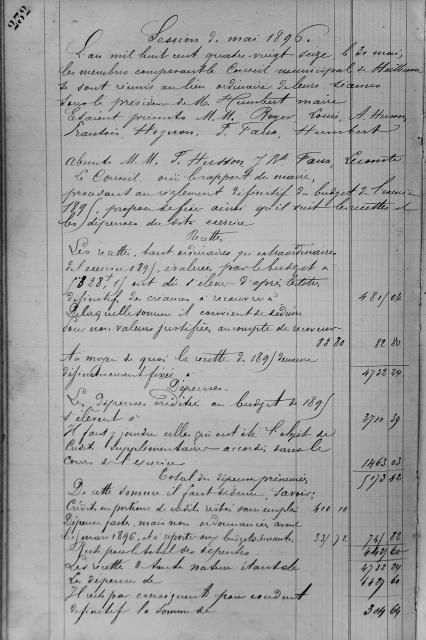 232
Session de mai 1896.
L'an mil huit cent quatre-vingt seize le 20 mai,
les membres composant le Conseil municipal de
se sont réunis au lieu ordinaire de leurs séances
sous la présidence de M. Humbert maire
Etaient présents M.M. Royer Louis, A. Husson
François, Hognon, F. Faus, Humbert
Absents M.M. F. Husson, J Bte Faus, Lecomte
Le Conseil ouï le rapport du maire,
procédant au règlement définitif du budget de l'exercice
1895, propose de fixer ainsi qu'il suit les recettes et
les dépenses du dit exercice
Recettes
Les recettes, tant ordinaires qu'extraordinaires
de l'exercice 1895, évaluées par le budget à
ont dû s'élever d'après les totes
définitifs de créances à recouvrer à 4815 04
De laquelle somme il convient de déduire
pour non valeurs justifiées au compte du receveur
82 80 82 80
Au moyen de quoi la recette de 1895 demeure
définitivement fixée à 4732 24
Dépenses.
Les dépenses créditées au budget de 1895
s'élèvent à 3710 39
Il faut y joindre celles qui ont été l'objet de
Crédits supplémentaires accordés dans le
cours de l'exercice 1463 03
Total des dépenses présumées 5173 42
De cette somme il faut déduire, savoir:
Crédits ou portions de crédits restés sans emploi 410 10
Dépenses faites, mais non ordonnancées avant
le 15 mars 1896, et à reporter aux budgets suivants 82
Reste pour le total des dépenses 60
Les recettes de toute nature étant de 4732 24
Les dépenses de 60
Il reste par conséquent pour excédent
définitif la somme de 304 64